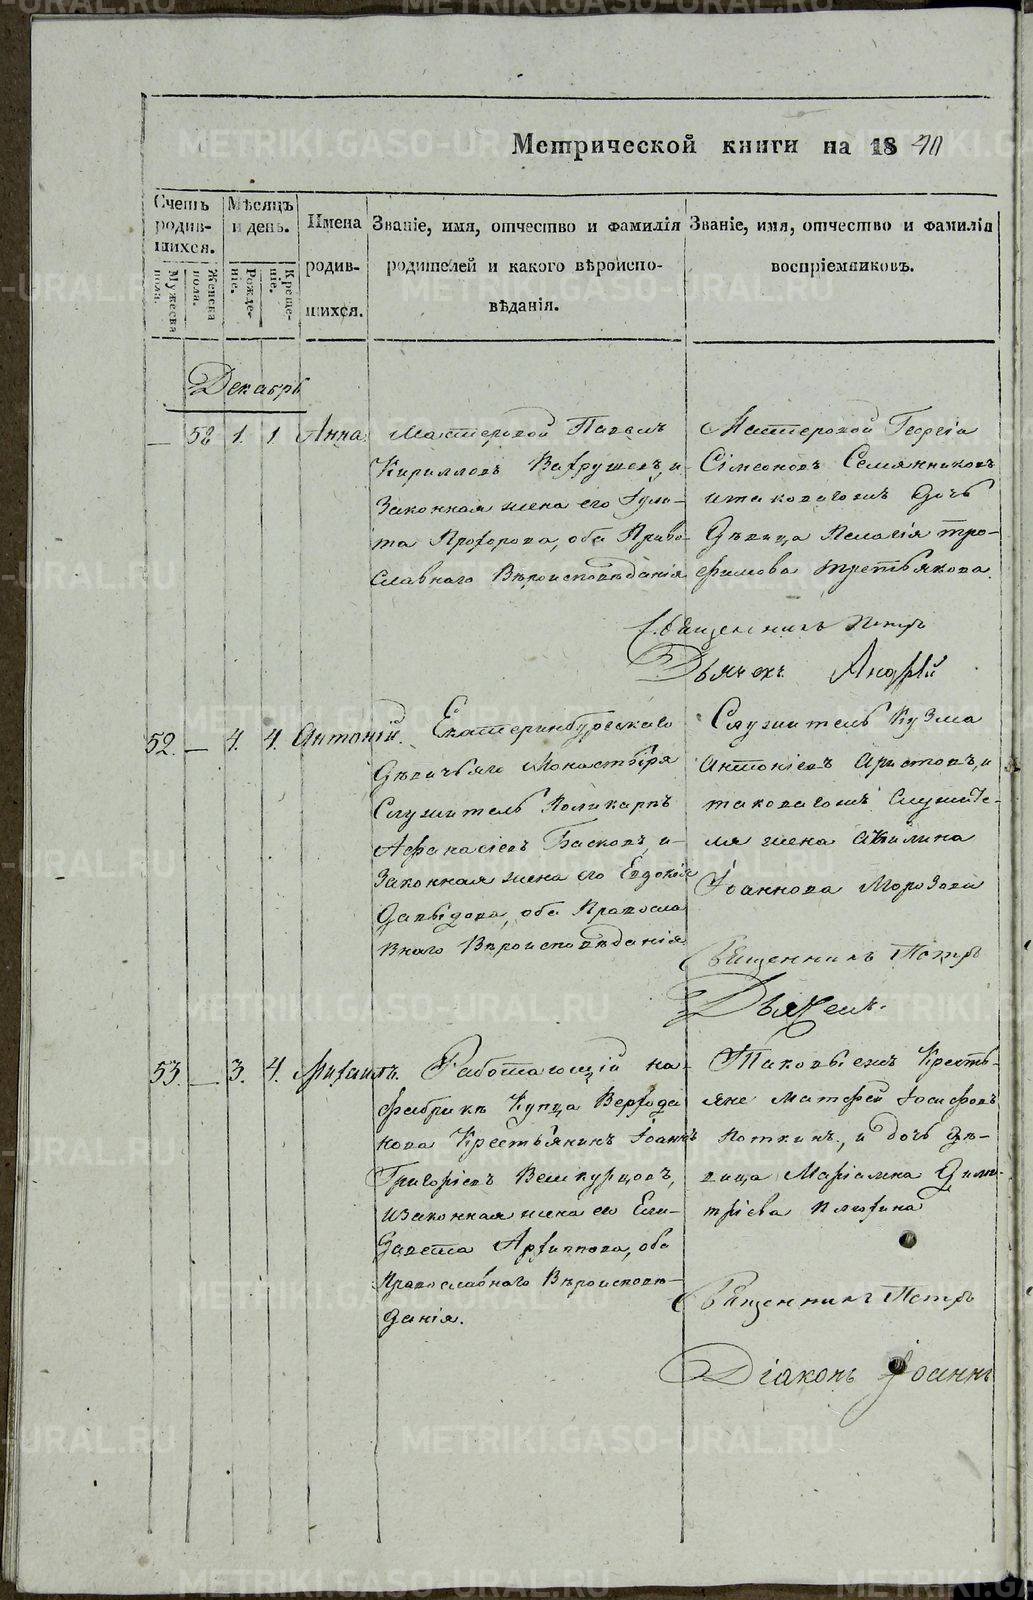 Метрической книги на 1840
Счетъ родив-шихся.
Мужеска пола.
Женска пола.
Мѣсяцъ и день.
Рожде-ніе.
Креще-ніе.
Имена родив-шихся.
Званіе, имя, отчество и фамилія
родителей и какого вѣроиспо-
вѣданія.
Званіе, имя, отчество и фамилія
воспріемниковъ.
Декабрь
— 58 1. 1 Анна
Мастеровой Павелъ
Кирилловъ Вахрушевъ, и
Законная жена его Іули-
та Прохорова, оба Право-
славнаго Вѣроисповѣданія
Мастеровой Георгій
Сімеоновъ Семянниковъ
и таковагожъ дочь
Дѣвица Пелагія Тро-
фимова Третьякова.
Священникъ Петръ
Дьячекъ Андрей
52. — 4. 4. Антоній.
Екатеринбургскаго
Дѣвичьяго Монастыря
Служитель Поликарпъ
Афанасіевъ Басковъ, и
Законная жена его Евдокія
Давыдова, оба Правосла
внаго Вѣроисповѣданія
Служитель Кузма
Антоніевъ Аристовъ, и
таковагожъ Служите-
ля жена Акилина
Іоаннова Морозова
Священникъ Петръ
Дьячекъ.
53. — 3. 4. Михаилъ.
Работающій на
фабрикѣ Купца Верхода
нова Крестьянинъ Іоаннъ
Григоріевъ Вешкурцовъ,
и Законная жена его Ели-
завета Архиппова, оба
Православнаго Вѣроисповѣ-
данія.
Таковыежъ Кресть-
яне Матфей Іосифовъ
Поткинъ, и дочь Дѣ-
вица Маріамна Дими-
тріева Плюхина
Священникъ Петръ
Діаконъ Іоаннъ
METRIKI.GASO-URAL.RU